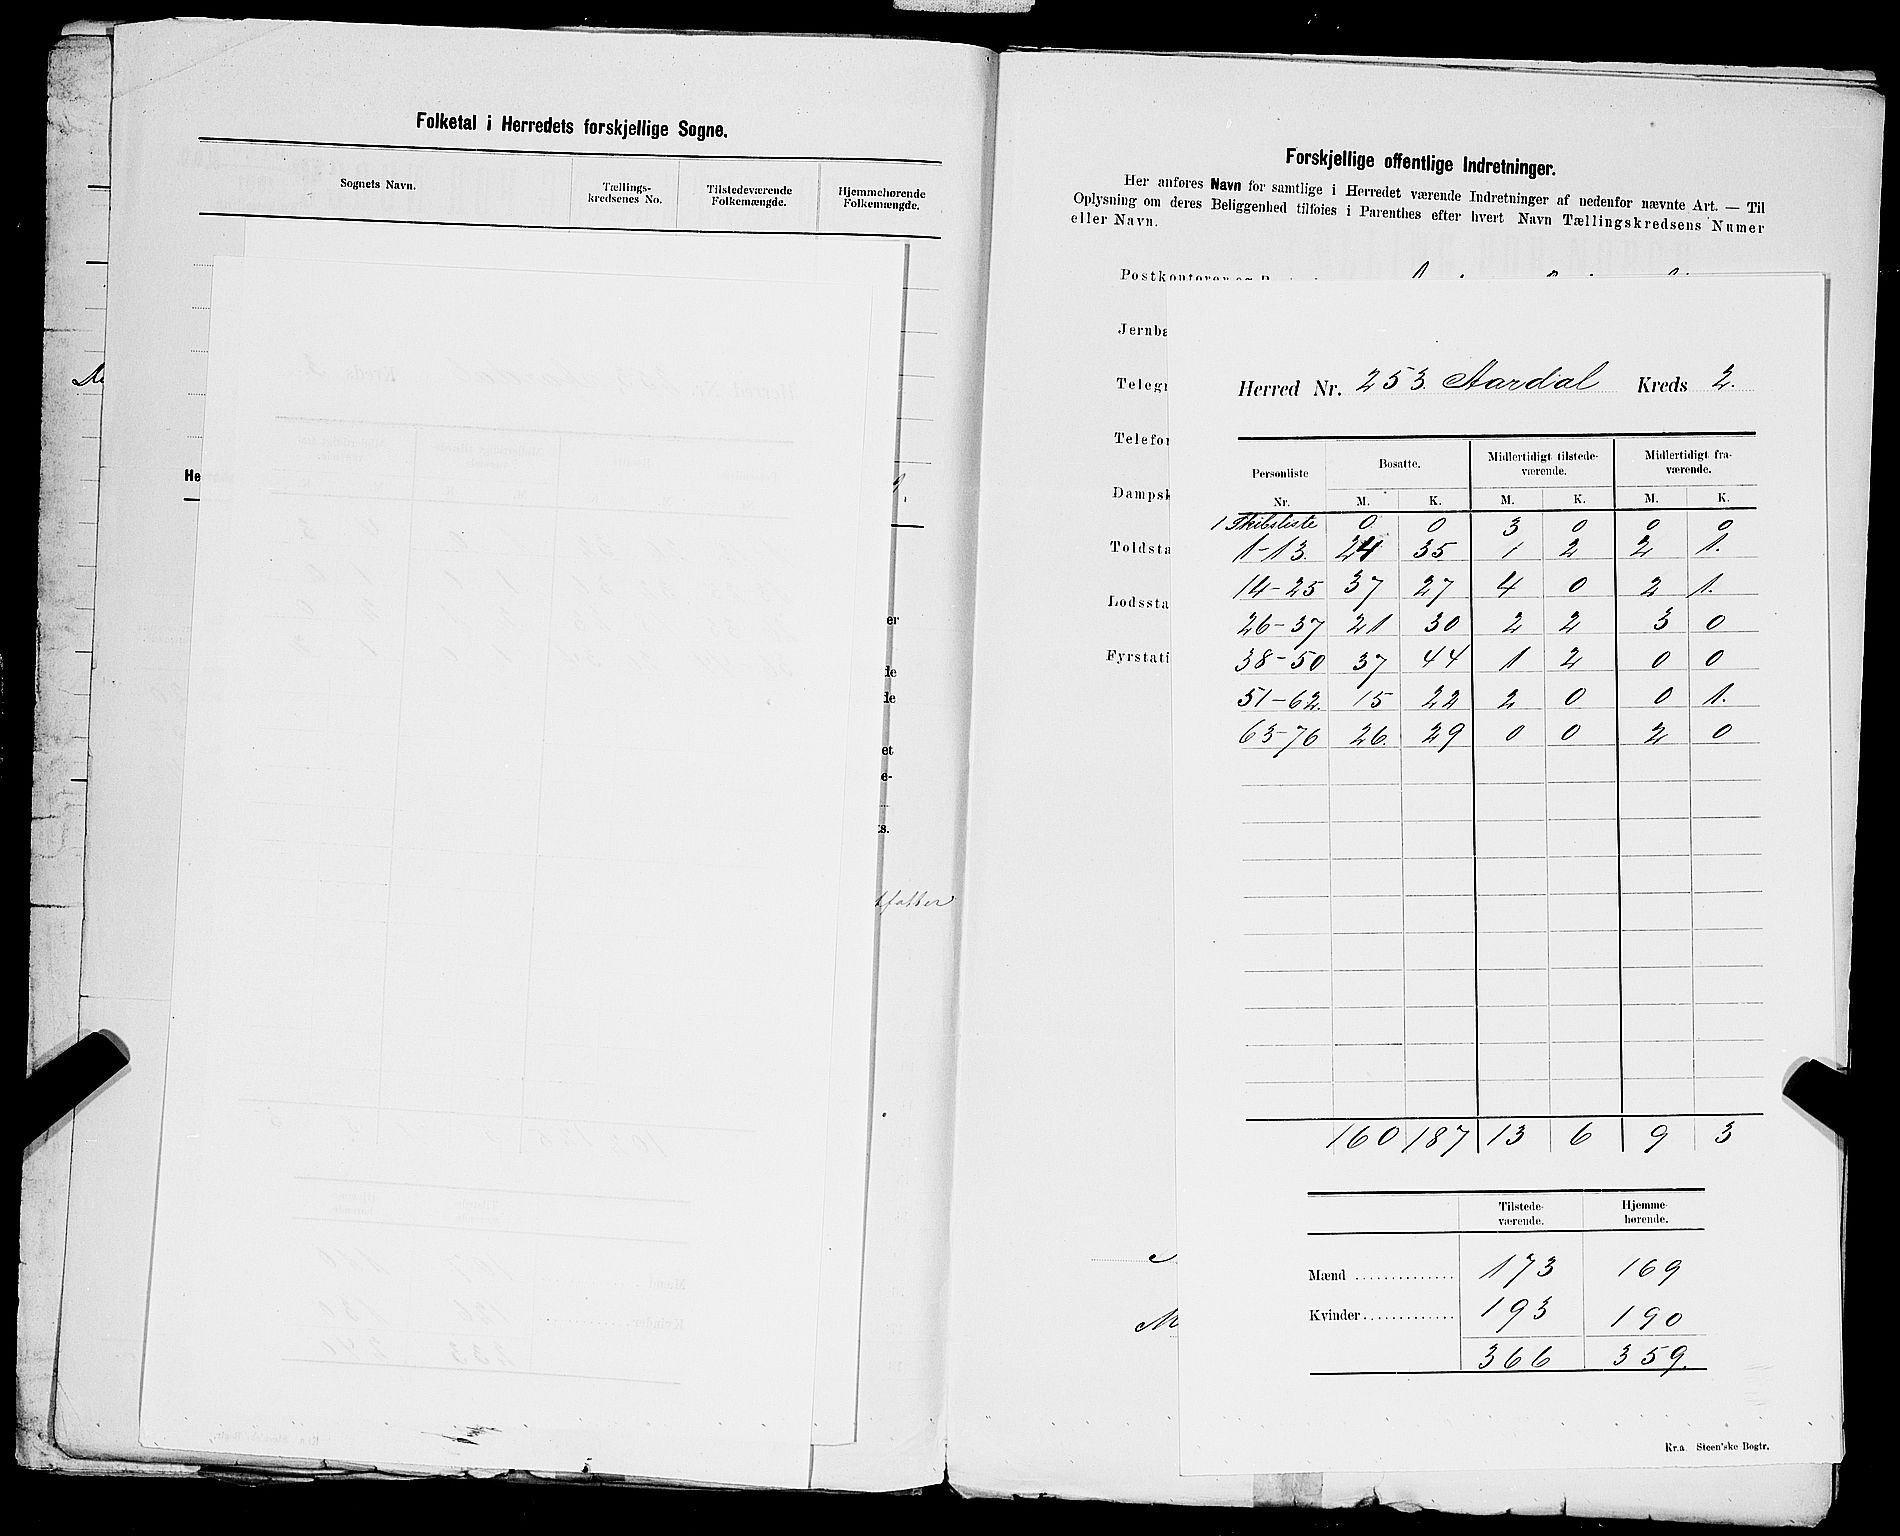 Folketal i Herredets forskjellige Sogne.
Sognets Navn.
Tællings-
kredsenes No.
Tilstedeværende
Folkemængde.
Hjemmehørende
Folkemængde.
He
er
de
de
et
e-
s.
Forskjellige offentlige Indretninger.
Her anføres Navn for samtlige i Herredet værende Indretninger af nedenfor nævnte Art. — Til
Oplysning om deres Beliggenhed tilføies i Parenthes efter hvert Navn Tællingskredsens Numer
eller Navn.
Postkontorer og
Jernba
Telegr
Telefor
Dampsk
Toldsta
Lodssta
Fyrstati
Herred Nr. 253. Aardal Kreds 2.
Personliste
Nr.
Bosatte.
Midlertidigt tilstede-
værende.
Midlertidigt fra-
værende.
M. K. M. K. M. K.
1 Skibsliste 0 0 3 0 0 0
1-13. 24 35 1 2 2 1.
14-25 37 27 4 0 2 1.
26-37 21 30 2 2 3 0
38-50 37 44 1 2 0 0
51-62. 15 22 2 0 0 1.
63-76 26. 29 0 0 2 0
160 187 13 6 9 3
Tilstede-
værende.
Hjemme-
hørende.
Mænd 173 169
Kvinder 193 190
366 359.
Kr.a. Steen'ske Bogtr.